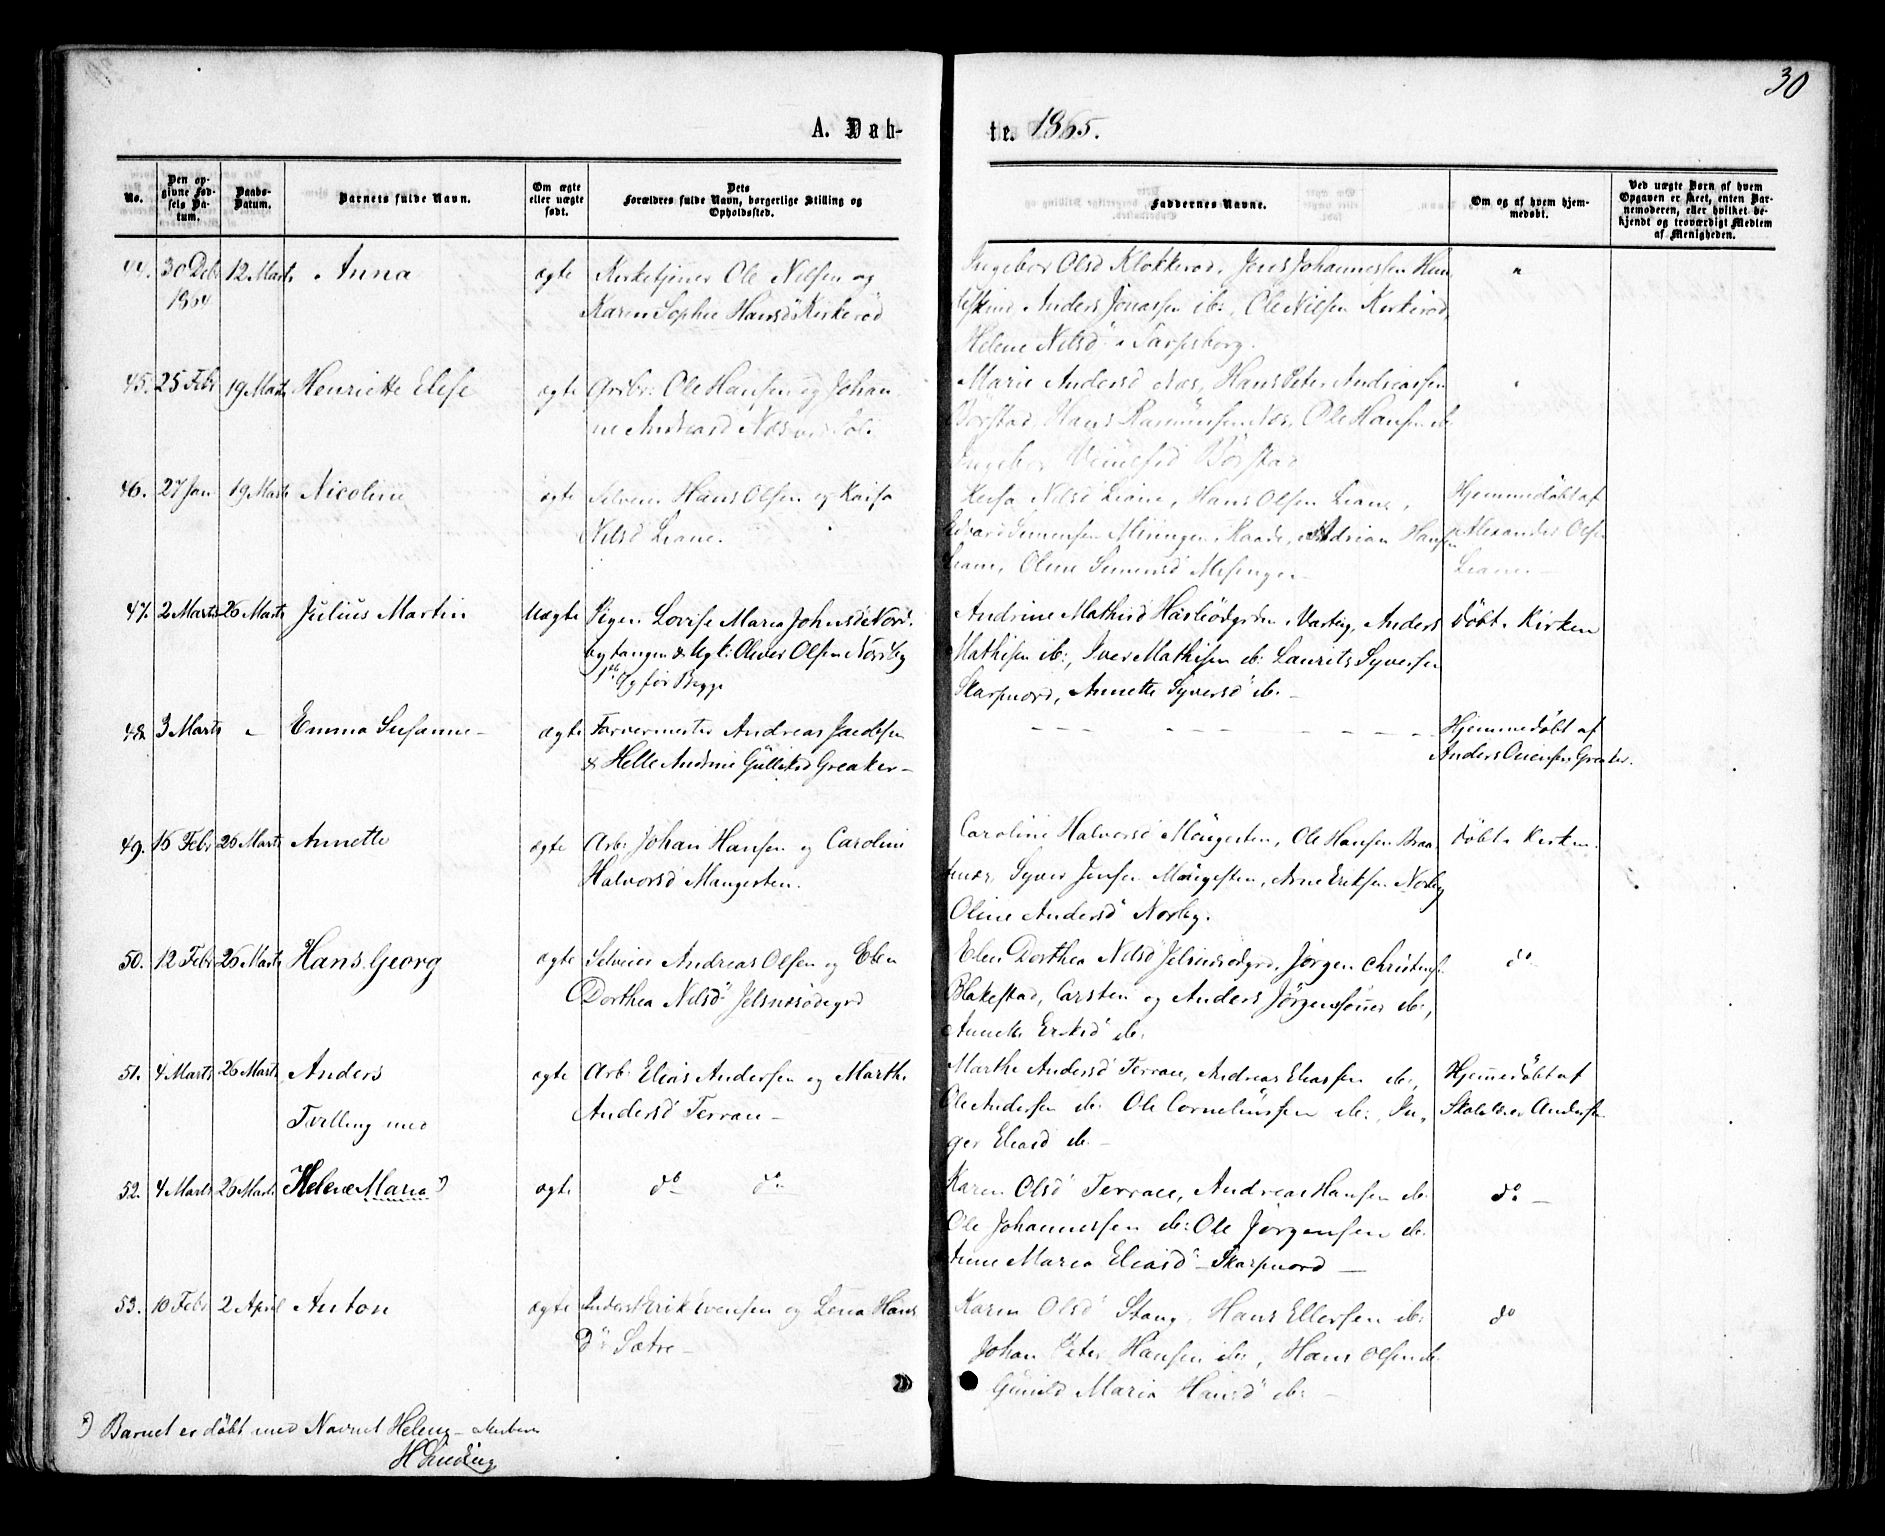 30
A. Døb-
te. 1865.
No.
Den op-
givne Fød-
sels Da-
tum.
Daabs-
Datum.
Barnets fulde Navn.
Om ægte
eller uægte
født.
Dets
Forældres fulde Navn, borgerlige Stilling og
Opholdssted.
Faddernes Navne.
Om og af hvem hjem-
medøbt.
Ved uægte Børn af hvem
Opgaven er skeet, enten Bar-
nemoderen, eller hvilket be-
kjendt og troværdigt Medlem
af Menigheden.
44. 30 Debr 12 Marts Anna ægte Kirketjener Ole Nilsen og
1864 Karen Sophie Hansd Kirkerød
Ingebor Olsd Klokkerød, Jens Johannessen Hun
Anders Jonassen ib:, Ole Nilsen Kirkerød,
Helene Nilsd Sarpsborg.
45. 25 Febr 19 Marts Henriette Elise ægte Arbr: Ole Hansen og Johan
ne Andreasd Næs
Marie Andersd Næs, Hans Peter Andreassen
Børstad, Hans Rasmussen Næs, Ole Hansen ib
Ingebor Børstad
46. 27 Jan 19 Marts Nicoline ægte Selveier Hans Olsen og Kaisa
Nilsd Liane.
Kaisa Nilsd Liane, Hans Olsen Liane,
Edvard Simensen Missingen, Raade, Adrian Hansen
Liane, Oline Simensd Misingen
Hjemmedøbt af
Alexander Olsen
Liane
47. 2 Marts 26 Marts Julius Martin Uægte Pigen Lovise Maria Johnsd Nord,
bytangen & Ugk: Oliver Olsen Nordby
1ste Gg for Begge
Andrine Mathisd i Varteig, Anders
Mathisen ib:, Iver Mathisen ib: Laurits Syversen
Skarpnord, Annette Syversd ib. –
Døbt i Kirken
48. 3 Marts – Emma Susanne – ægte Farvermester Andreas Jacobsen
& Helle Andrine Gulliksd Greaker –
Hjemmedøbt af
Anders Greaker.
49. 16 Febr 26 Marts Annette ægte Arb: Johan Hansen og Caroline
Halvorsd Maugesten.
Caroline Halvorsd Maugesten, Ole Hansen Braa
tenæs, Syver Jensen Maugesten, Arne Eriksen Norby
Oline Andersd Norby.
Døbt i Kirken.
50. 12 Febr 26 Marts Hans Georg ægte Selveier Andreas Olsen og Elen
Dorthea Nilsd Jelsnessødegrd
Elen Dorthea Nilsd Jelsnesødgrd, Jørgen Christensen
Blakestad, Carsten og Anders Jørgensønner ib:,
Annette ib:
do
51. 4 Marts 26 Marts Anders ægte Arb. Elias Andersen og Marthe
Tvilling med Andersd Terraie –
Marthe Andersd Terraie, Andreas Eliassen ib.,
Ole Andersen ib: Ole Corneliussen ib:, In,
ger Eliasd ib. –
Hjemmedøbt af
Skolelærer Andersen
52. 4 Marts 26 Marts Helene Maria *) ægte do do
Karen Olsd Terraie, Andreas Hansen ib.
Ole Johannessen ib: Ole Jørgensen ib.
Anne Maria Eliasd – Skarpnord –
do –
53. 10 Febr 2 April Anton ægte Inderst Erik Evensen og Lena Hans
Dr Sætre –
Karen Olsd Stang, Hans Ellefsen ib:
Johan Peter Hansen ib:, Hans Olsen ib.
Gunild Maria Hansd ib: –
do
*) Barnet er døbt med Navnet Helene
H Linding